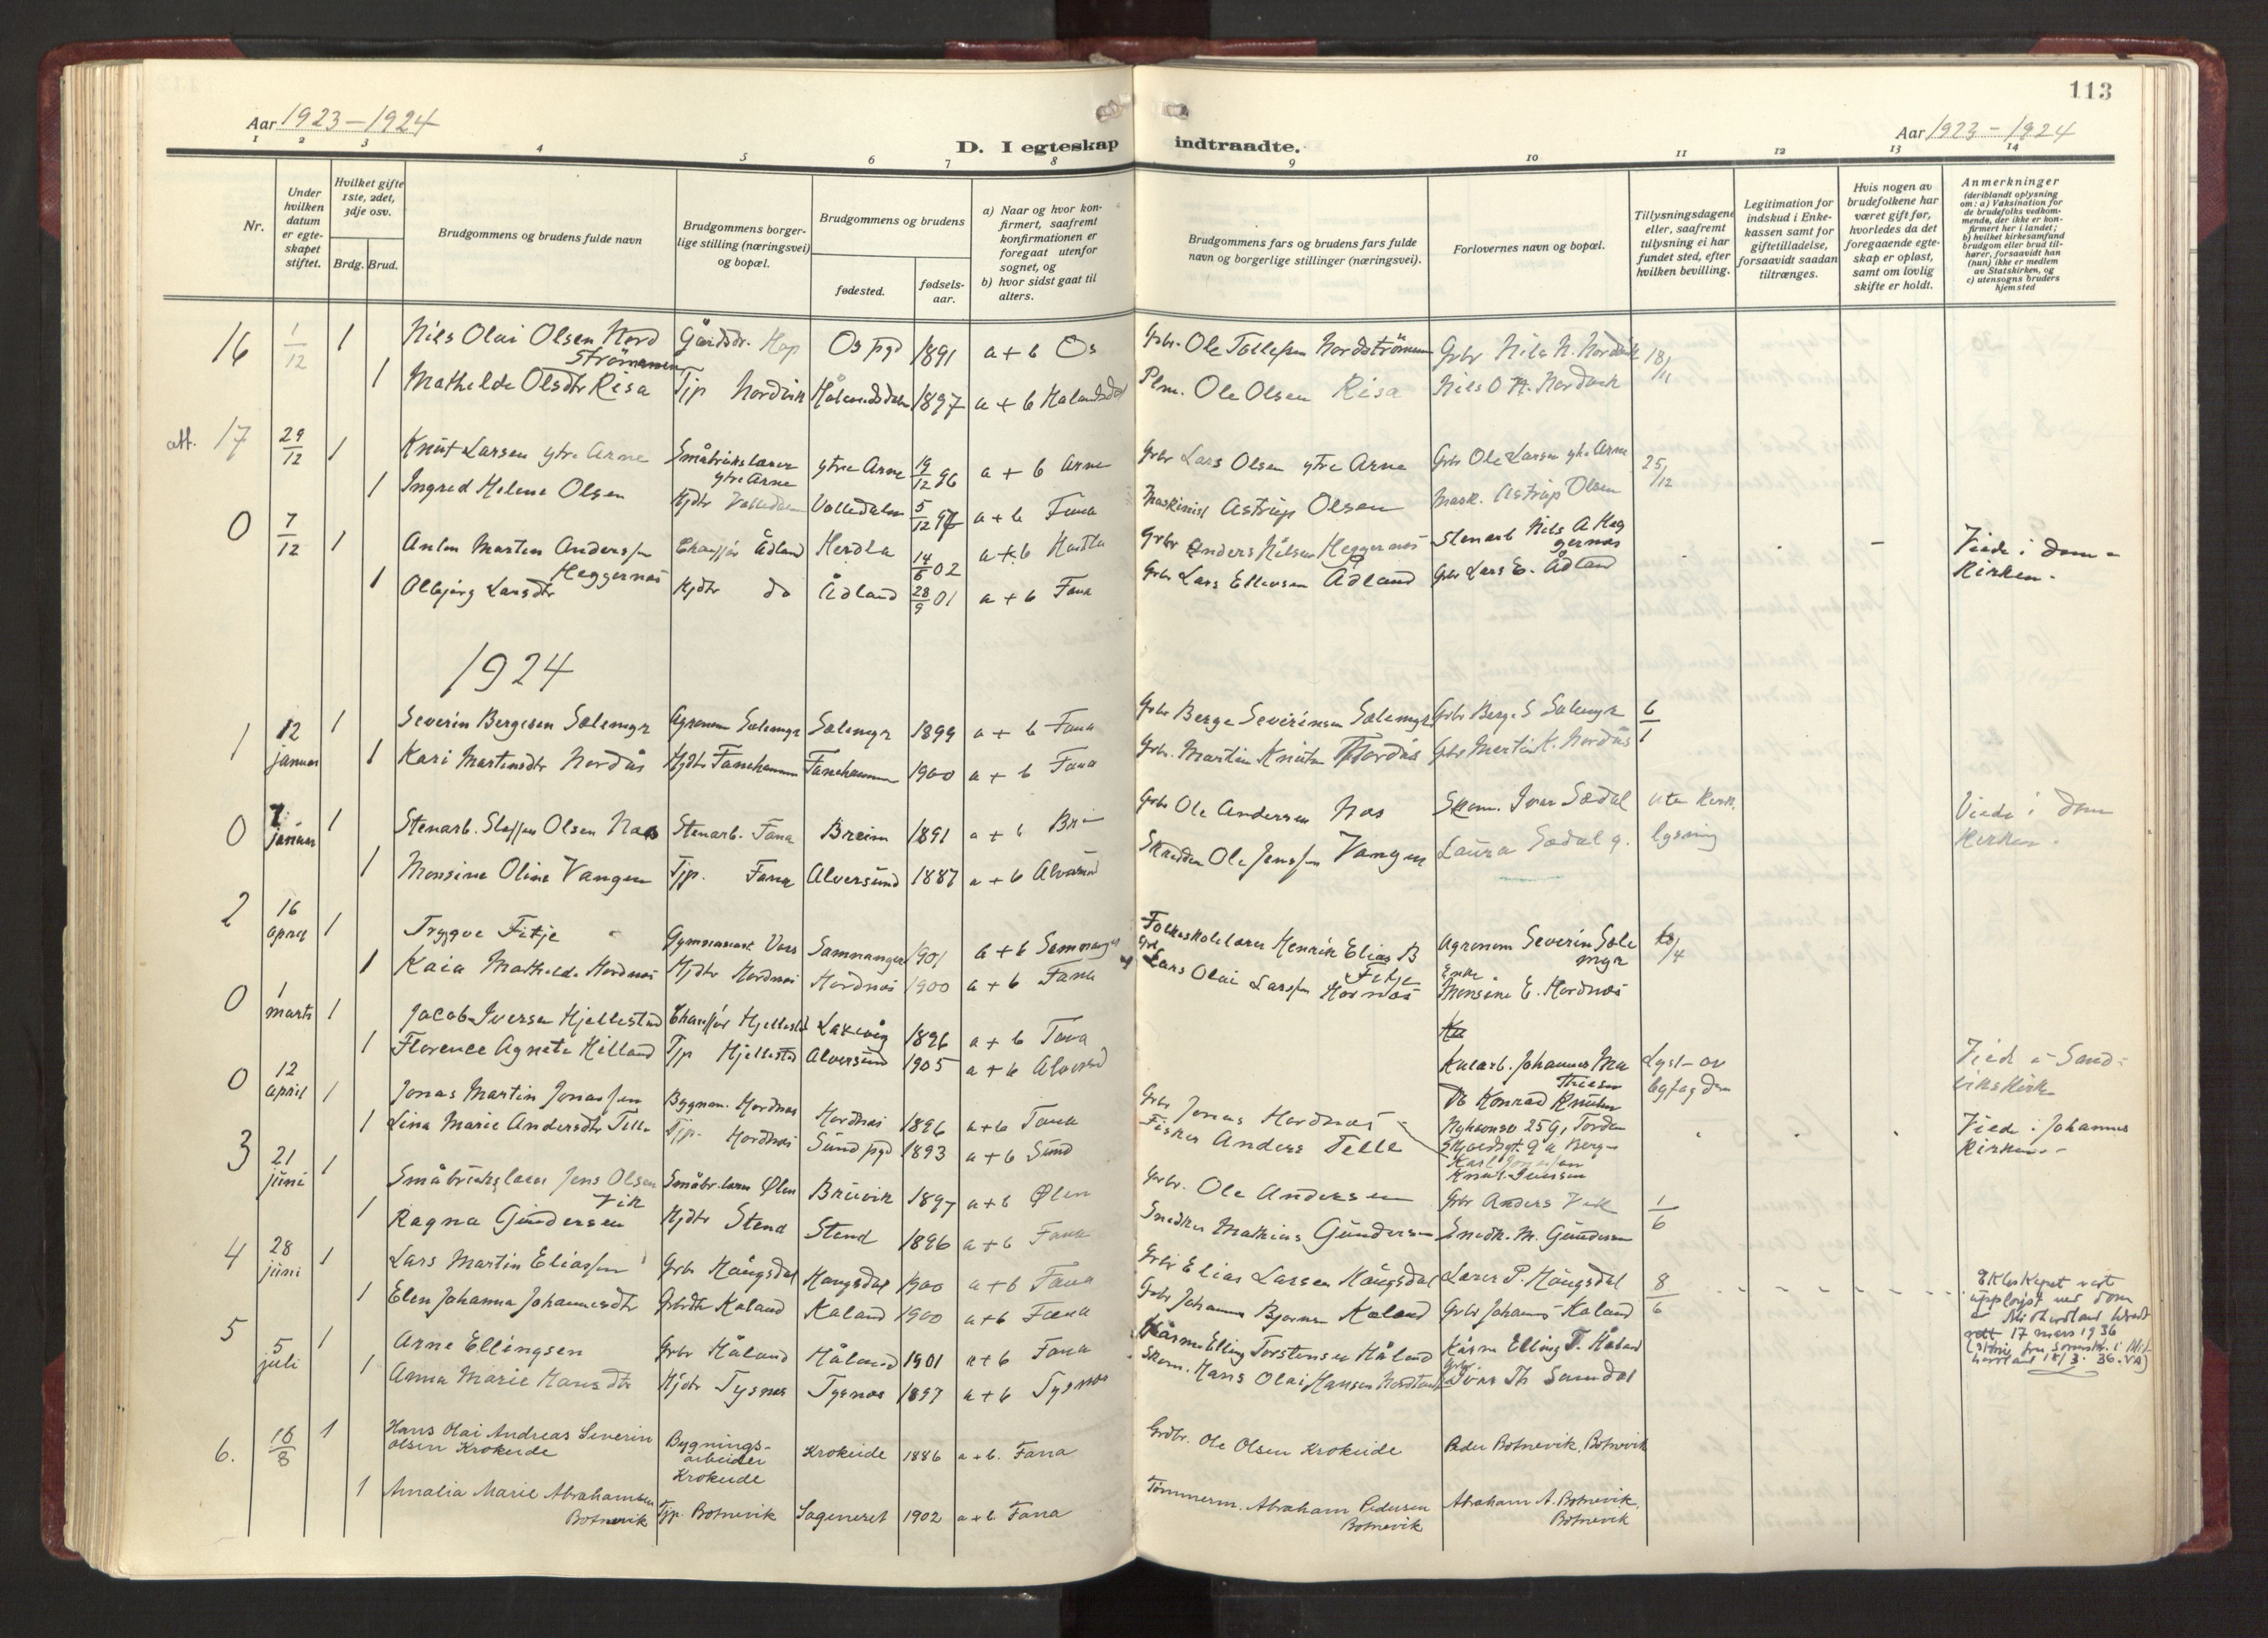 113
Aar 1923-1924
Aar 1923-1924
D. I egteskap indtraadte.
1 2 3 4 5 6 7 8 9 10 11 12 13 14
Nr.
Under hvilken datum er egteskapet stiftet.
Hvilket gifte 1ste, 2det, 3dje osv.
Brdg. Brud.
Brudgommens og brudens fulde navn
Brudgommens borgerlige stilling (næringsvei) og bopæl.
Brudgommens og brudens
fødested.
fødsels-aar.
a) Naar og hvor konfirmert, saafremt konfirmationen er foregaat utenfor sognet, og
b) hvor sidst gaat til alters.
Brudgommens fars og brudens fars fulde navn og borgerlige stillinger (næringsvei).
Forlovernes navn og bopæl.
Tillysningsdagene eller, saafremt tillysning ei har fundet sted, efter hvilken bevilling.
Legitimation for indskud i Enkekassen samt for giftetilladelse, forsaavidt saadan tiltrænges.
Hvis nogen av brudefolkene har været gift før, hvorledes da det foregaaende egteskap er opløst, samt om lovlig skifte er holdt.
Anmerkninger
(deriblandt oplysning om: a) Vaksination for de brudefolks vedkommende, der ikke er konfirmert her i landet;
b) hvilket kirkesamfund brudgom eller brud tilhører, forsaavidt han (hun) ikke er medlem av Statskirken, og
c) utensogns bruders hjemsted
16 1/12 1 Nils Olai Olsen Nordströmmen Gårdbr. Hop Os pgd 1891 a + b Os Grbr. Ole Tollefsen Nordströmmen Grbr Nils N. Nordvik 18/11
1 Mathilde Olsdtr Risa Tjp Nordvik Hålandsdalen 1897 a + b Hålandsdal Plm. Ole Olsen Risa Nils O
att. 17 29/12 1 Knut Larsen ytre Arne Småbrukslærer ytre Arne ytre Arne 19/12 96 a + b Arne Grbr Lars Olsen ytre Arne Grbr Ole Larsen ytre Arne 25/12
1 Ingred Helene Olsen Hjdtr Valledalen Valledalen 5/12 97 a + b Fana Maskinist Astrup Olsen Mask. Astrup Olsen
0 7/12 1 Anton Martin Anderssen Heggernæs Chauffør Ådland Herdla 14/6 02 a + b Herdla Grbr Anders Nilsen Heggernæs Stenarb Nils A Heggernæs - - - Viede i Domkirken.
1 Olbjørg Larsdtr Hjdtr do Ådland 28/9 01 a + b Fana Grbr Lars Ellevsen Ådland Grbr Lars E. Ådland
1924
1 12 januar 1 Severin Bergesen Sælemyr Agronom Sælemyr Sælemyr 1899 a + b Fana Grbr Berge Severinsen Sælemyr Grbr Berge S Sælemyr 6/1
1 Kari Martinsdtr Nordås Hjdtr Fanehammer Fanehammer 1900 a + b Fana Grbr. Martin Knutsen Nordås Grbr Martin K. Nordås
0 7 januar 1 Stenarb. Steffen Olsen Naes Stenarb. Fana Breim 1891 a + b Breim Grbr Ole Andersen Nes Skom. Iver Sædal uten kirk. lysning Viede i Domkirken.
1 Monsine Oline Vangen Tjp. Fana Alversund 1887 a + b Alversund Skredder Ole Jenssen Vangen Laura Sædal g.
2 16 april 1 Trygve Fitje Gymnasiast Voss Samnanger 1901 a + b Samnanger Folkeskolelærer Henrik Elias B Fitje Agronom Severin Sælemyr /4
1 Kaia Mathilde Hordnæs Hjdtr Hordnæs Hordnæs 1900 a + b Fana Grbr Lars Olai Larssen Hordnæs Enke Monsine E. Hordnæs
0 1 marts 1 Jacob Iversen Hjellestad Chauffør Hjellestad Laksevåg 1896 a + b Fana
1 Florence Agnete Hilland Tjp Hjellestad Alversund 1905 a + b Alversund Kaiarb. Johannes Mathiesen Lyst av Viede i Sandvikskirk
0 12 april 1 Jonas Martin Jonassen Bygnm. Hordnæs Hordnæs 1896 a + b Fana Grbr Jonas Hordnæs Konrad Knutsen
1 Lina Marie Andersdtr Telle Tjp. Hordnæs Sund pgd 1893 a + b Sund Fisker Anders Telle Viede i Johannes Kirken.
3 21 juni 1 Småbrukslærer Jens Olsen Vik Småbr.lærer Ølen Bruvik 1897 a + b Ølen Grbr. Ole Andersen Grbr Anders Vik 1/6
1 Ragna Gundersen Hjdtr Stend Stend 1896 a + b Fana Snedker Mathias Gundersen Snedk. M. Gundersen
4 28 juni 1 Lars Martin Eliassen Grbr Haugsdal Haugsdal 1900 a + b Fana Grbr Elias Larsen Haugsdal Lærer P. Haugsdal 8/6 Ekteskapet vart uppløyst ved dom i Midhordland herads rett 17 mars 1936
1 Elen Johanna Johannesdtr Grbrdtr Kaland Kaland 1900 a + b Fana Grbr Johannes Bjørnsen Kaland Grbr Johannes Kaland
5 5 juli 1 Arne Ellingsen Grbr Håland Håland 1901 a + b Fana Kårmann Elling Torstensen Håland Kårm Elling T. Håland
1 Anna Marie Hansdtr Hjdtr Tysnes Tysnes 1897 a + b Tysnes Skom. Hans Olai Hansen Grbr. Ivar Th Samdal
6. 16/8 1 Hans Olai Andreas Severin Olsen Krokeide Bygningsarbeider Krokeide Krokeide 1886 a + b. Fana Grdbr. Ole Olsen Krokeide Peder Botnevik, Botnevik
1 Amalia Marie Abrahamsen Botnevik Tjp. Botnevik Sageneset 1902 a + b Fana Tömmerm. Abraham Pedersen Botnevik Abraham A. Botnevik, Botnevik